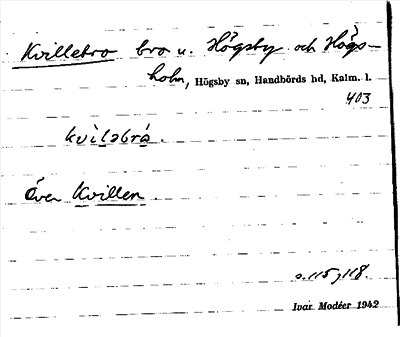 Kvillebro bro u. Högsby och Högs-
holm, Högsby sn, Handbörds hd, Kalm. l.
403
kvìləbrò.
Över Kvillen.
s. 115, 118.
Ivar Modéer 1942